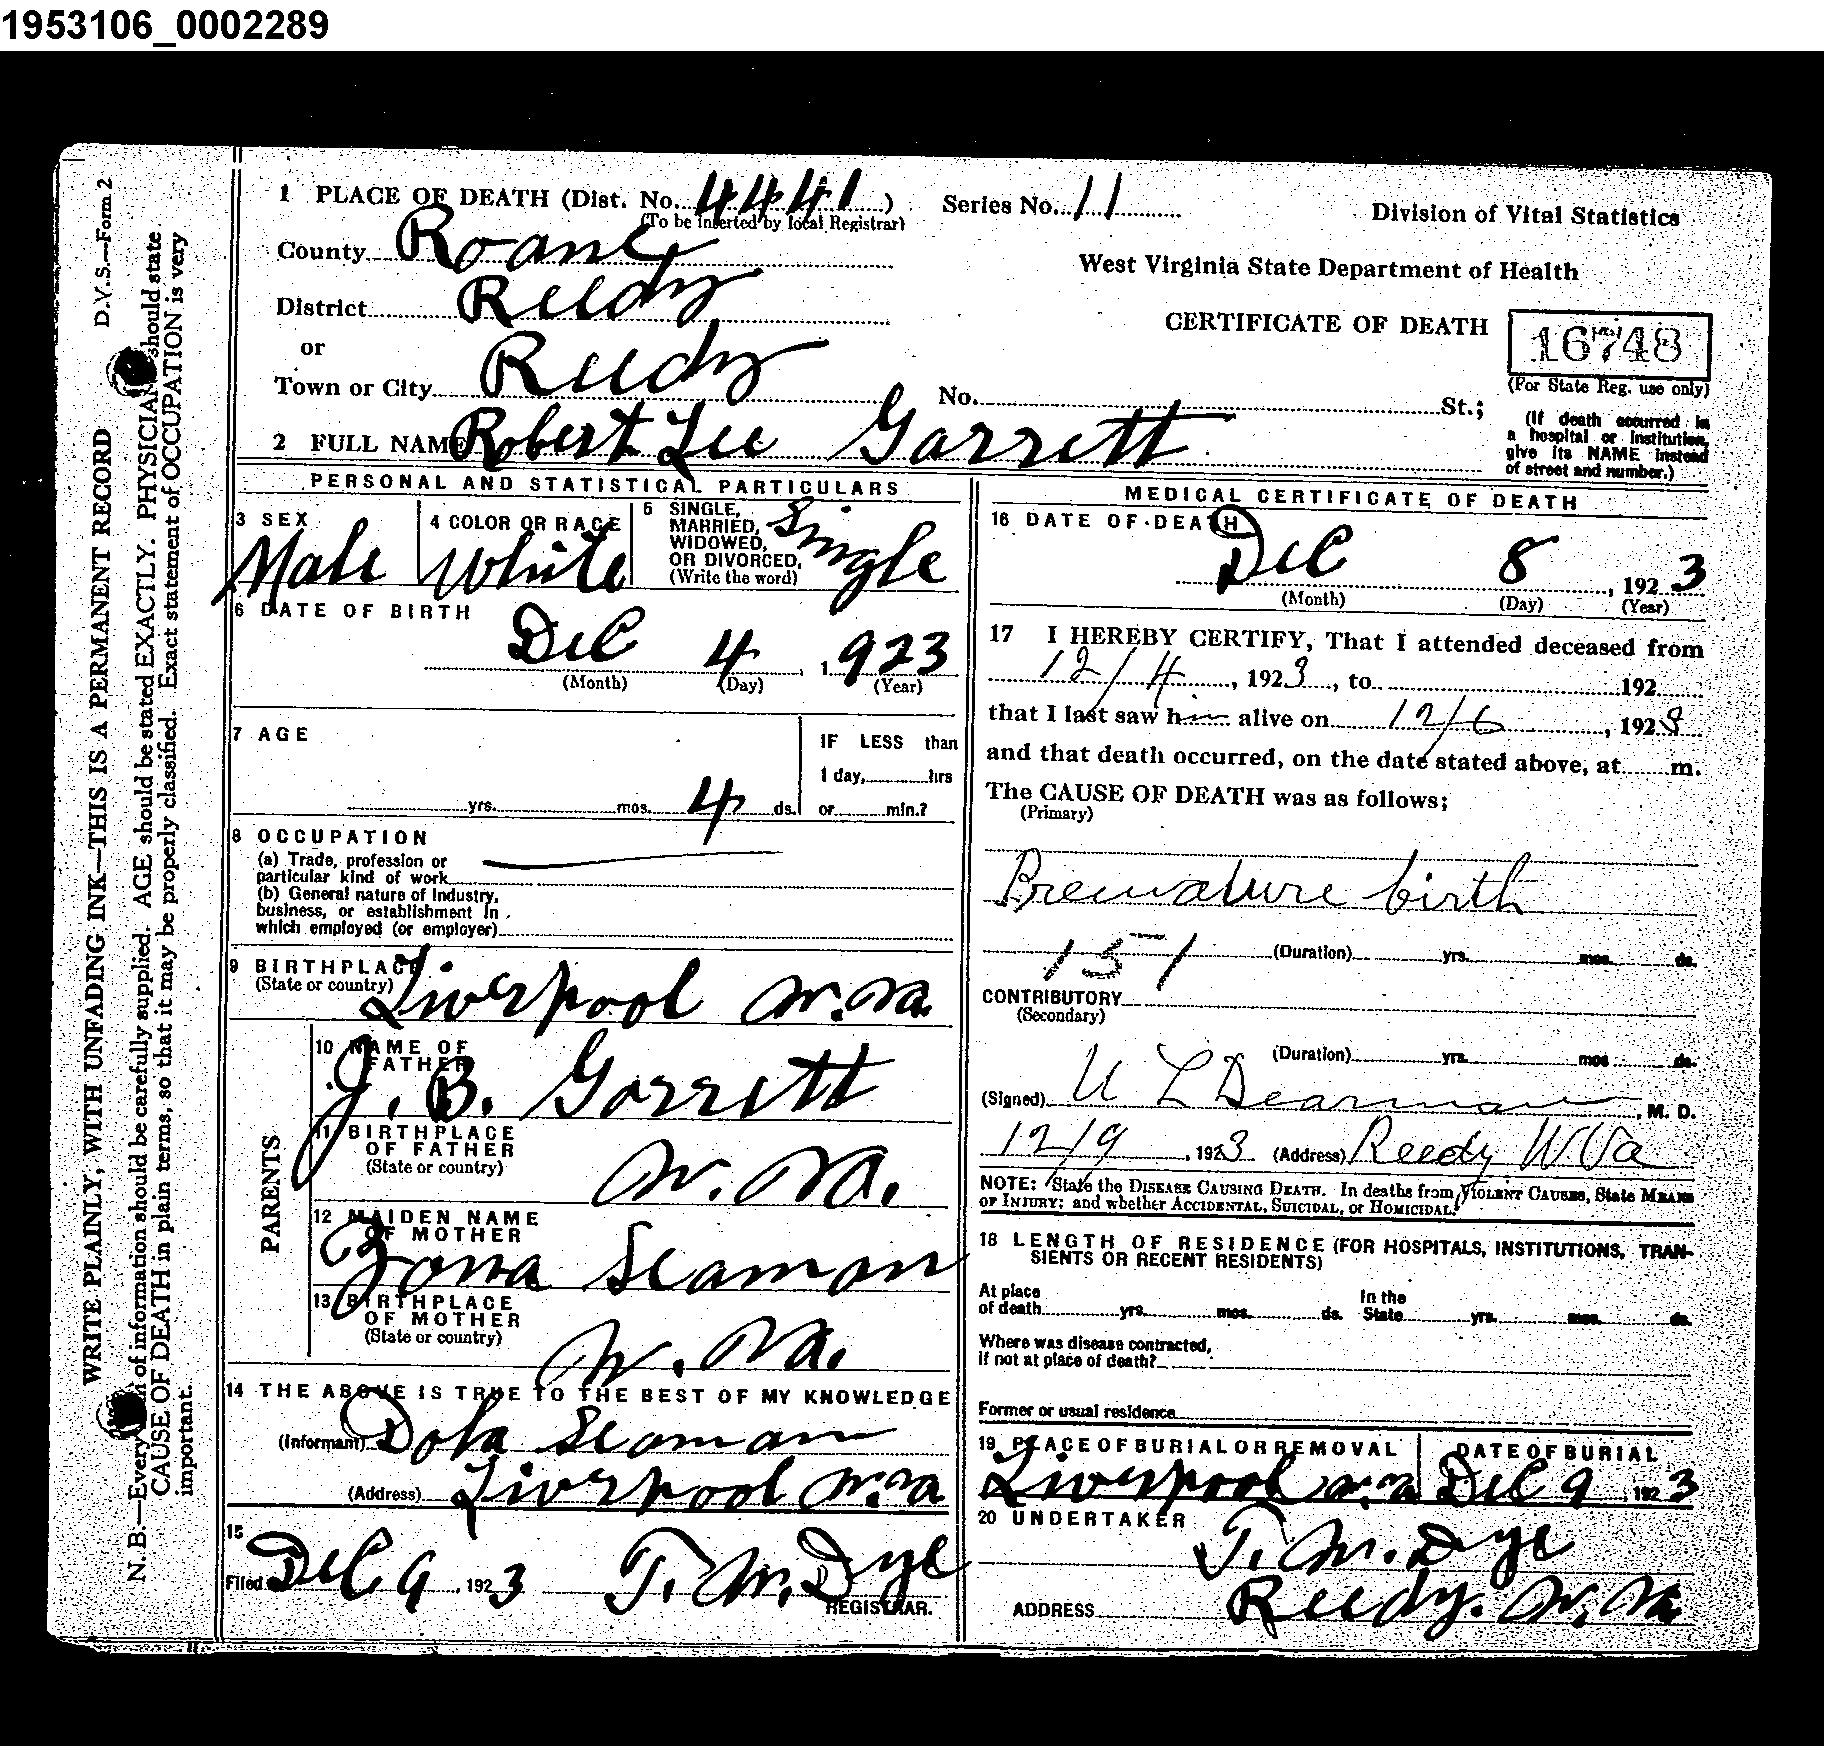 1953106_0002289
D.V.S.—Form 2
WRITE PLAINLY, WITH UNFADING INK—THIS IS A PERMANENT RECORD
N. B.—Every of information should be carefully supplied. AGE should be stated EXACTLY. PHYSICIAN should state
CAUSE OF DEATH in plain terms, so that it may be properly classified. Exact statement of OCCUPATION is very
important.
1 PLACE OF DEATH (Dist. No. 4441) Series No. 11
(To be inserted by local Registrar)
Division of Vital Statistics
County Roane
West Virginia State Department of Health
District Reedy
CERTIFICATE OF DEATH 16748
or
(For State Reg. use only)
Town or City Reedy No. St.;
(If death occurred in
a hospital or institution,
give its NAME instead
of street and number.)
2 FULL NAME Robert Lee Garrett
PERSONAL AND STATISTICAL PARTICULARS
3 SEX Male
4 COLOR OR RACE White
5 SINGLE,
MARRIED,
WIDOWED,
OR DIVORCED,
(Write the word) Single
6 DATE OF BIRTH
Dec 4, 1923
(Month) (Day) (Year)
7 AGE
yrs. mos. 4 ds.
IF LESS than
1 day, hrs
or min.?
8 OCCUPATION
(a) Trade, profession or
particular kind of work
(b) General nature of Industry,
business, or establishment in
which employed (or employer)
9 BIRTHPLACE
(State or country) Liverpool W.Va.
PARENTS
10 NAME OF
FATHER
J. B. Garrett
11 BIRTHPLACE
OF FATHER
(State or country) W. Va.
12 MAIDEN NAME
OF MOTHER
Zona Seaman
13 BIRTHPLACE
OF MOTHER
(State or country) W. Va.
14 THE ABOVE IS TRUE TO THE BEST OF MY KNOWLEDGE
(Informant) Dola Seaman
(Address) Liverpool W.Va
15
Filed Dec 9, 1923 T. M. Dye
REGISTRAR.
MEDICAL CERTIFICATE OF DEATH
16 DATE OF DEATH
Dec 8, 1923
(Month) (Day) (Year)
17 I HEREBY CERTIFY, That I attended deceased from
12/4, 1923, to 192
that I last saw him alive on 12/6, 1923
and that death occurred, on the date stated above, at m.
The CAUSE OF DEATH was as follows;
(Primary)
Premature birth
151 (Duration) yrs. mos. ds.
CONTRIBUTORY
(Secondary)
(Duration) yrs. mos. ds.
(Signed) U L Dearman, M. D.
12/9, 1923 (Address) Reedy W Va
NOTE: State the DISEASE CAUSING DEATH. In deaths from VIOLENT CAUSES, State MEANS
OF INJURY; and whether ACCIDENTAL, SUICIDAL, or HOMICIDAL.
18 LENGTH OF RESIDENCE (FOR HOSPITALS, INSTITUTIONS, TRAN-
SIENTS OR RECENT RESIDENTS)
At place In the
of death yrs. mos. ds. State yrs. mos. ds.
Where was disease contracted,
if not at place of death?
Former or usual residence
19 PLACE OF BURIAL OR REMOVAL DATE OF BURIAL
Liverpool W.Va Dec 9, 1923
20 UNDERTAKER T. M. Dye
ADDRESS Reedy. W. Va.